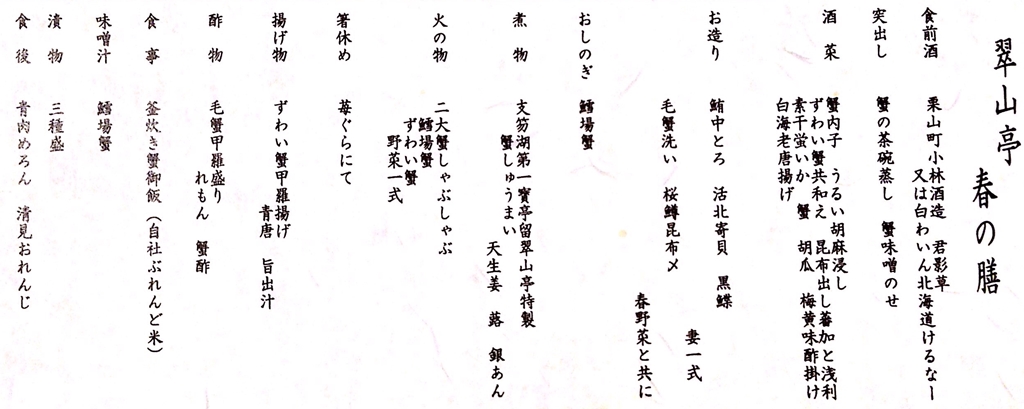 翠山亭
春の膳
食前酒 栗山町小林酒造 君影草
又は白わいん北海道けるなー
突出し 蟹の茶碗蒸し 蟹味噌のせ
酒菜 蟹内子 うるい胡麻浸し
ずわい蟹共和え 昆布出し蕃加と浅利
素干蛍いか 蟹 胡瓜 梅黄味酢掛け
白海老唐揚げ
お造り 鮪中とろ 活北寄貝 黒鰈
妻一式
毛蟹洗い 桜鱒昆布〆
春野菜と共に
おしのぎ 鱈場蟹
煮物 支笏湖第一寶亭留翠山亭特製
蟹しゅうまい
天生姜 蕗 銀あん
火の物 二大蟹しゃぶしゃぶ
鱈場蟹
ずわい蟹
野菜一式
箸休め 苺ぐらにて
揚げ物 ずわい蟹甲羅揚げ
青唐 旨出汁
酢物 毛蟹甲羅盛り
れもん 蟹酢
食事 釜炊き蟹御飯（自社ぶれんど米）
味噌汁 鱈場蟹
漬物 三種盛
食後 青肉めろん 清見おれんじ